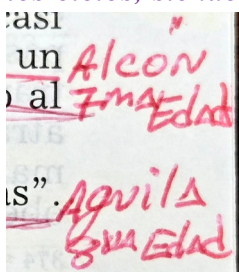 casi
un Alcón
al 7ma Edad
as". Aguila
8va Edad